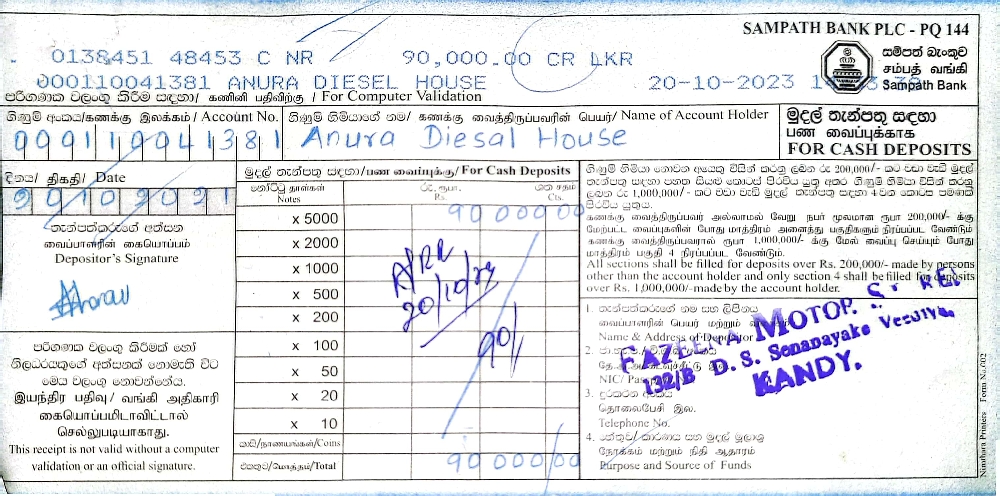 SAMPATH BANK PLC - PQ 144
0138451 48453 C NR 90,000.00 CR LKR
සම්පත් බැංකුව
சம்பத் வங்கி
Sampath Bank
000110041381 ANURA DIESEL HOUSE 20-10-2023
පරිගණක වලංගු කිරීම සඳහා/ கணினி பதிவிற்கு / For Computer Validation
ගිණුම් අංකය/கணக்கு இலக்கம் / Account No. ගිණුම් හිමියාගේ නම/ கணக்கு வைத்திருப்பவரின் பெயர்/ Name of Account Holder
000110041381 Anura Diesal House
මුදල් තැන්පතු සඳහා
பண வைப்புக்காக
FOR CASH DEPOSITS
දිනය/ திகதி/ Date
මුදල් තැන්පතු සඳහා/பண வைப்புக்கு/ For Cash Deposits
නෝට්ටු தாள்கள் රු. ரூபா. ශත சதம்
Notes Rs. Cts.
x 5000 90000 00
x 2000
x 1000
x 500
x 200
x 100
x 50
x 20
x 10
කාසි/நாணயங்கள்/Coins
එකතුව/மொத்தம்/Total 90 000/00
20/10/23
90/
තැන්පත්කරුගේ අත්සන
வைப்பாளரின் கையொப்பம்
Depositor's Signature
පරිගණක වලංගු කිරීමක් හෝ
නිලධරයකුගේ අත්සනක් නොමැති විට
මෙය වලංගු නොවන්නේය.
இயந்திர பதிவு/ வங்கி அதிகாரி
கையொப்பமிடாவிட்டால்
செல்லுபடியாகாது.
This receipt is not valid without a computer
validation or an official signature.
ගිණුම් හිමියා නොවන අයෙකු විසින් කරනු ලබන රු 200,000/- කට වඩා වැඩි මුදල්
තැන්පතු සඳහා පහත සියළු කොටස් පිරවිය යුතු අතර ගිණුම් හිමියා විසින් කරනු
ලබන රු 1,000,000/- කට වඩා වැඩි මුදල් තැන්පතු සඳහා 4 වන කොටස පමණක්
පිරවිය යුතුය.
கணக்கு வைத்திருப்பவர் அல்லாமல் வேறு நபர் மூலமான ரூபா 200,000/- க்கு
மேற்பட்ட வைப்புகளின் போது மாத்திரம் அனைத்து பகுதிகளும் நிரப்பப்பட வேண்டும்
கணக்கு வைத்திருப்பவரால் ரூபா 1,000,000/- க்கு மேல் வைப்பு செய்யும் போது
மாத்திரம் பகுதி 4 நிரப்பப்பட வேண்டும்.
All sections shall be filled for deposits over Rs. 200,000/- made by persons
other than the account holder and only section 4 shall be filled for deposits
over Rs. 1,000,000/-made by the account holder.
1. තැන්පත්කරුගේ නම සහ ලිපිනය
வைப்பாளரின் பெயர் மற்றும்
Name & Address of Depositor
FAZEENA MOTOR
132/B D. S. Senanayake Veediya,
KANDY.
2.
NIC/
3. දුරකථන අංකය
தொலைபேசி இல.
Telephone No.
4. හේතුව/ කාරණය සහ මුදල් මූලාශ්‍ර
நோக்கம் மற்றும் நிதி ஆதாரம்
Purpose and Source of Funds
Ninohara Printers Form No.002